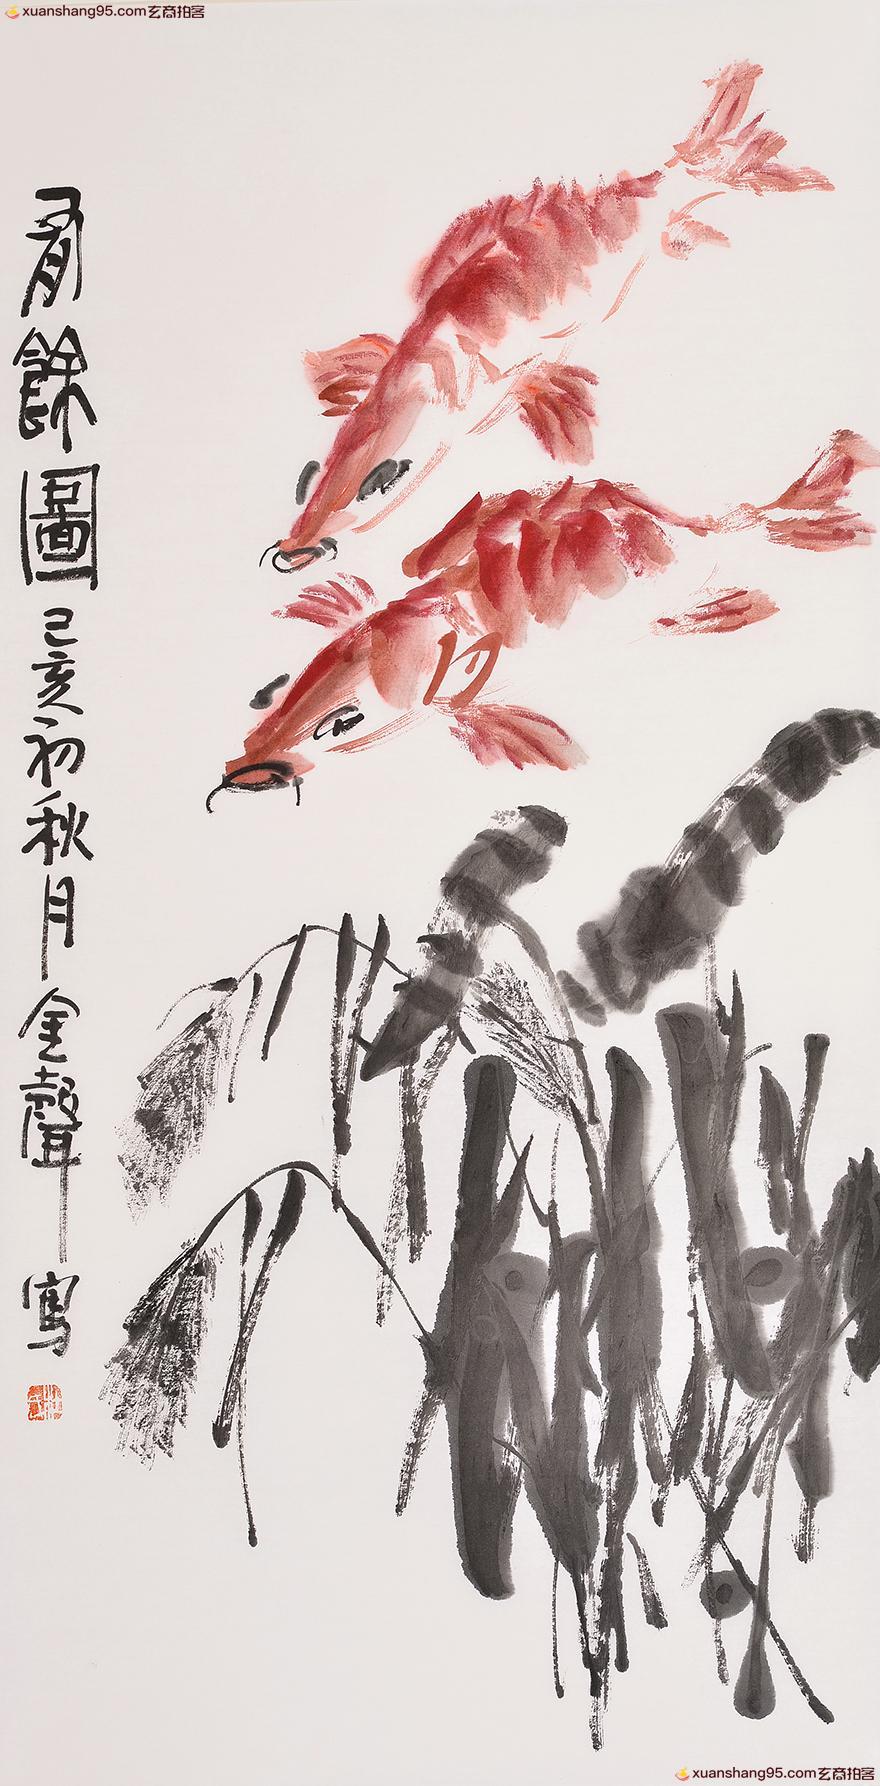 xuanshang95.com玄商拍客
有餘圖 己亥初秋月金聲寫
xuanshang95.com玄商拍客